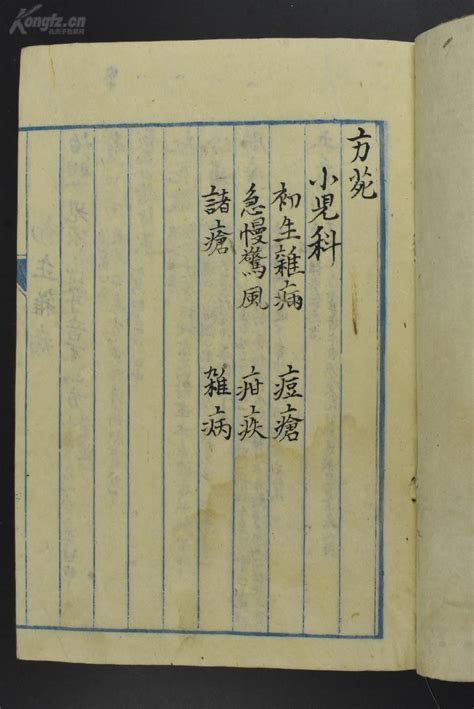 Kongfz.cn
方苑
小児科
初生雜病 痘瘡
急慢驚風 疳疾
諸瘡 雑病